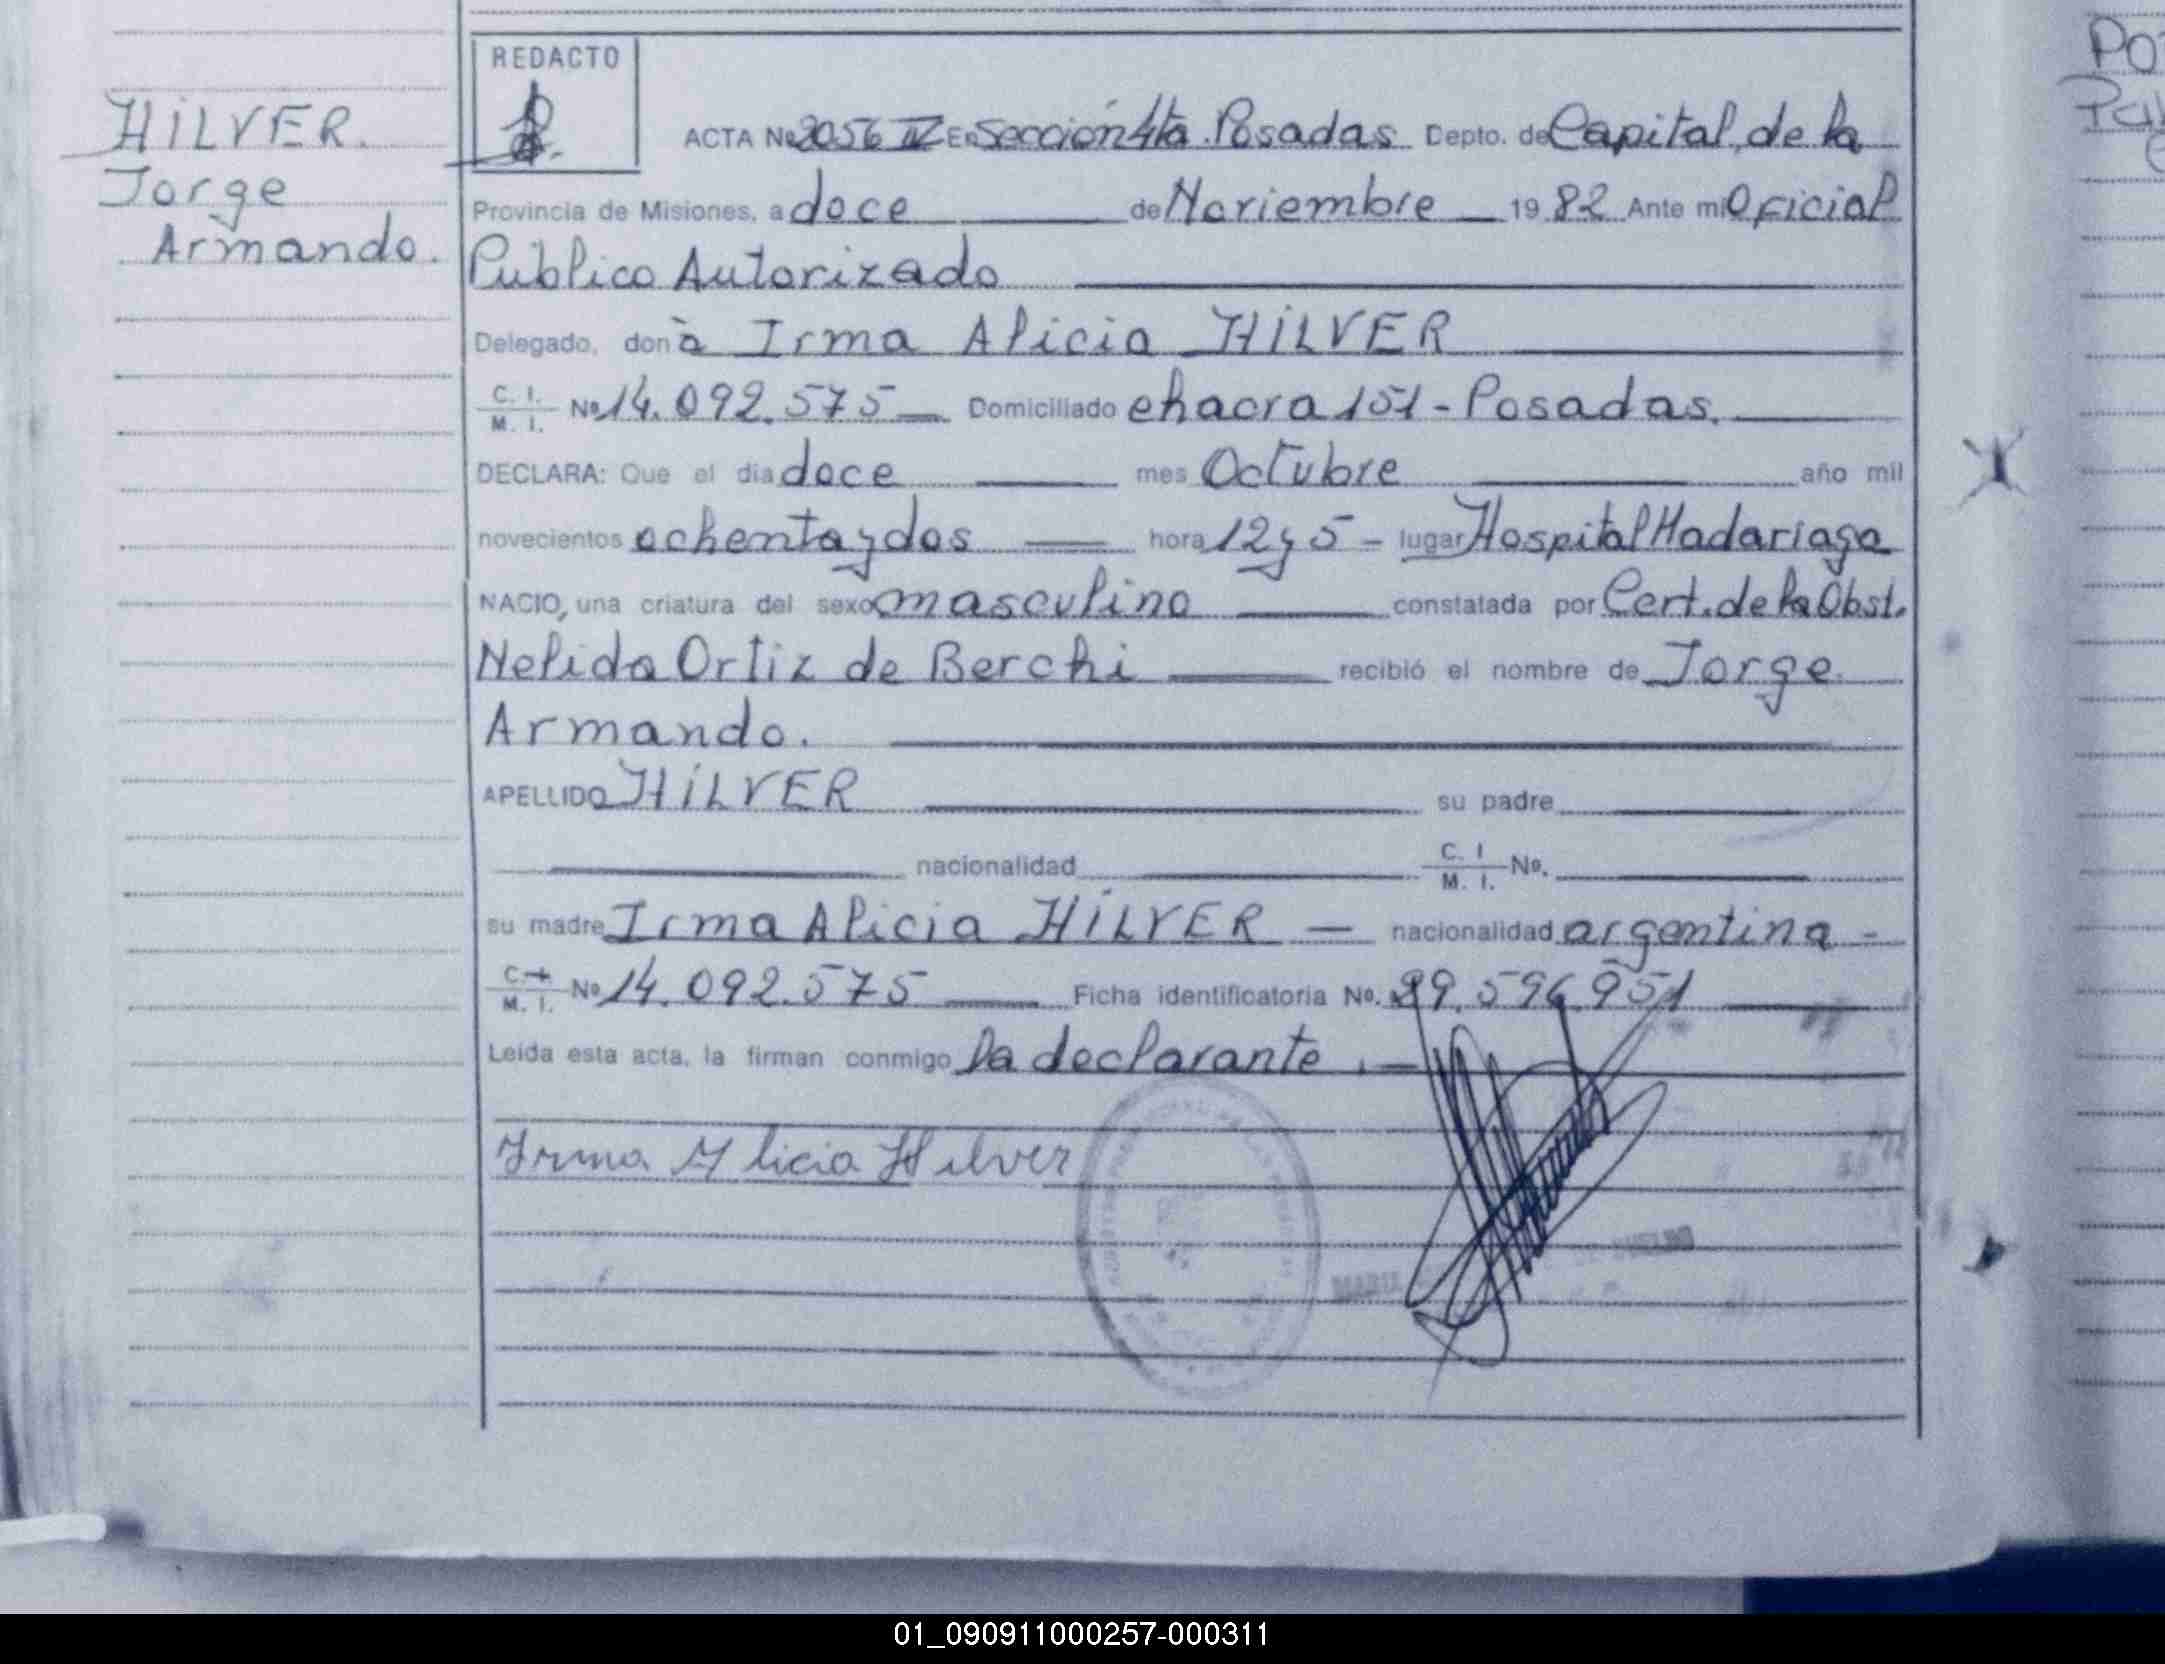 HILVER.
Jorge
Armando.
REDACTO
ACTA Nº 2056 IV En Sección 4ta. Posadas Depto. de Capital, de la
Provincia de Misiones, a doce de Noviembre 1982 Ante mi Oficial
Público Autorizado
Delegado, donà Irma Alicia HILVER
C. I. / M. I. Nº 14.092.575 Domiciliado chacra 151 - Posadas.
DECLARA: Que el día doce mes Octubre año mil
novecientos ochenta y dos hora 12 y 5 - lugar Hospital Madariaga
NACIO, una criatura del sexo masculino constatada por Cert. de la Obst.
Nelida Ortiz de Berchi recibió el nombre de Jorge
Armando.
APELLIDO HILVER su padre
nacionalidad C. I / M. I. Nº.
su madre Irma Alicia HILVER - nacionalidad argentina -
C. I. / M. I. Nº 14.092.575 Ficha identificatoria No. 29.596.951
Leída esta acta, la firman conmigo la declarante . -
Irma Alicia Hilver
PO
01_090911000257-000311